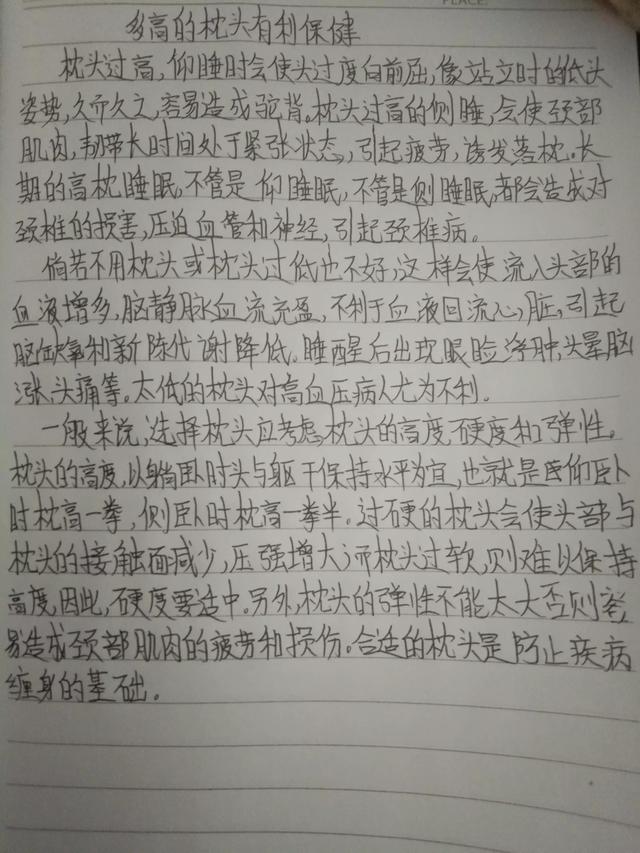 多高的枕头有利保健
枕头过高,仰睡时会使头过度向前屈,像站立时的低头
姿势,久而久之,容易造成驼背,枕头过高的侧睡,会使颈部
肌肉,韧带长时间处于紧张状态,引起疲劳,诱发落枕。长
期的高枕睡眠,不管是仰睡眠,不管是侧睡眠,都会造成对
颈椎的损害,压迫血管和神经,引起颈椎病。
倘若不用枕头或枕头过低也不好,这样会使流入头部的
血液增多,脑静脉血流充盈,不利于血液回流心脏,引起
脑缺氧和新陈代谢降低。睡醒后出现眼睑浮肿,头晕脑
涨,头痛等。太低的枕头对高血压病人尤为不利。
一般来说,选择枕头应考虑枕头的高度,硬度和弹性。
枕头的高度,以躺卧时头与躯干保持水平为宜,也就是仰卧
时枕高一拳,侧卧时枕高一拳半。过硬的枕头会使头部与
枕头的接触面减少,压强增大;而枕头过软,则难以保持
高度,因此,硬度要适中。另外,枕头的弹性不能太大否则容
易造成颈部肌肉的疲劳和损伤。合适的枕头是防止疾病
缠身的基础。